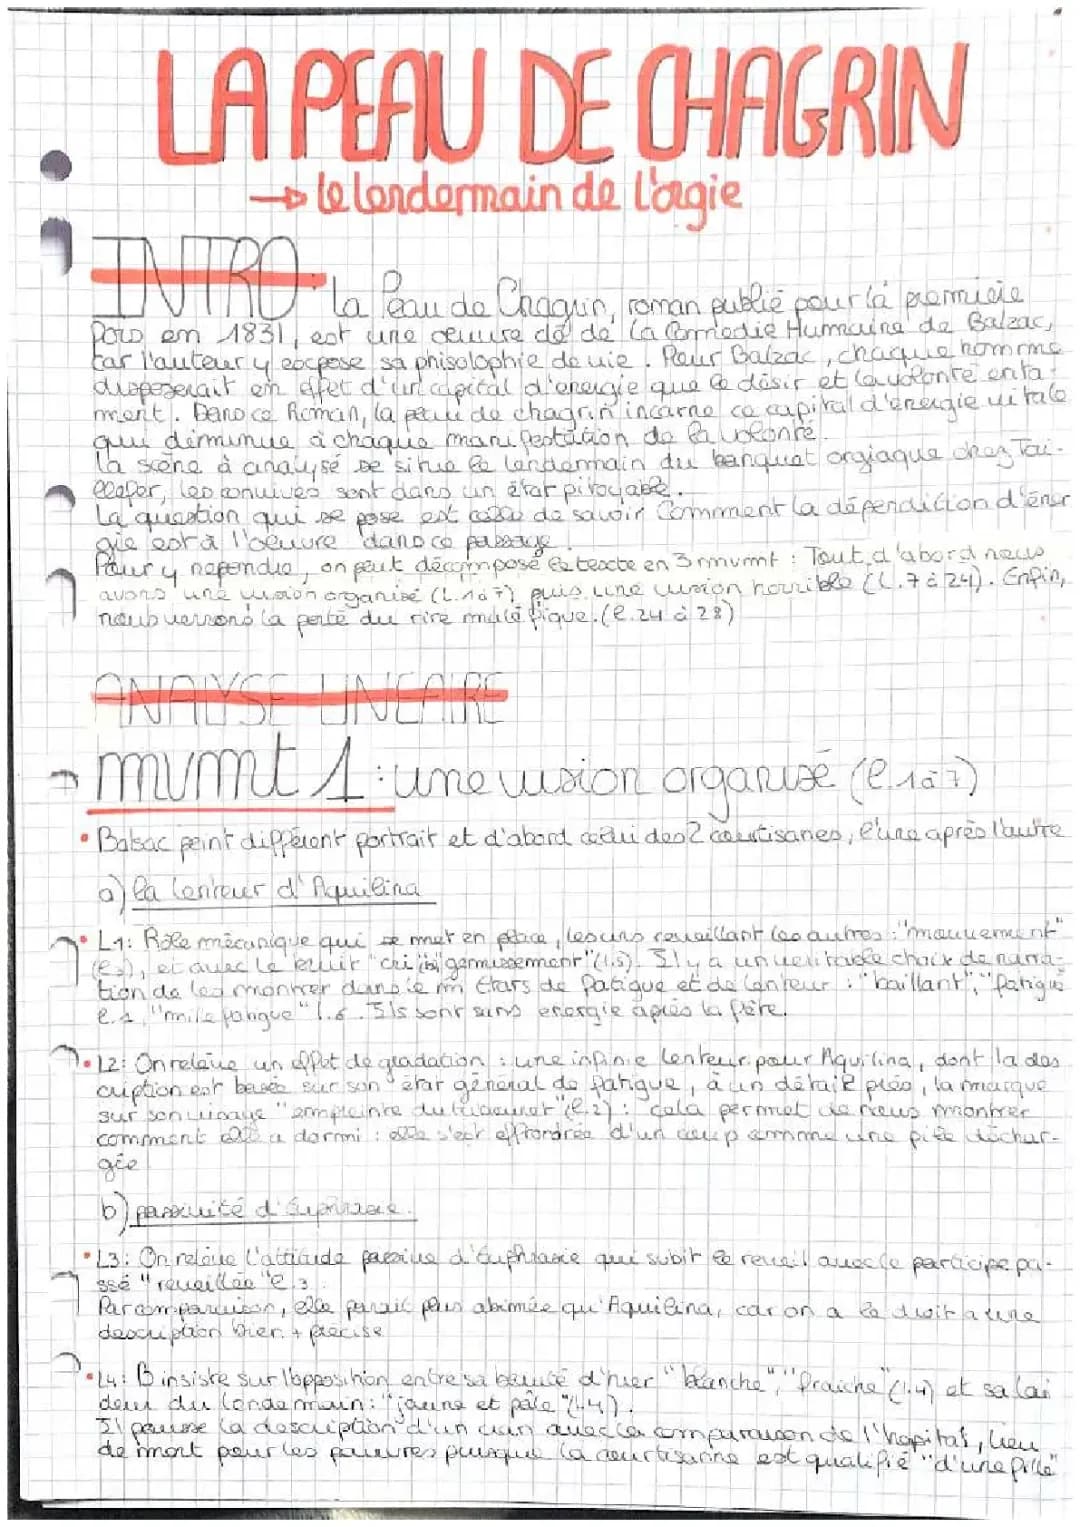 LA PEAU DE CHAGRIN
→ le lendermain de l'orgie
INTRO: La Peau de Chagrin, roman publié pour la première
fois en 1831, est une oeuvre clé de la Comedie Humaine de Balzac,
car l'auteur y expose sa phisolophie de vie. Pour Balzac, chaque homme
disposerait en effet d'un capital d'energie que le désir et la volonté enta-
ment. Dans ce Roman, la peau de chagrin incarne ce capital d'énergie vitale
qui diminue à chaque manifestation de la volonté.
La scène à analysé se situe le lendermain du banquet orgiaque chez Tai-
llefer, les convives sont dans un état pitoyable.
La question qui se pose est celle de savoir Comment la dépendiction d'éner
gie est à l'oeuvre dans ce passage.
Pour y repondre, on peut décomposé le texte en 3 mvmt : Tout d'abord nous
avons une vision organisé (L.1à7) puis une vision horrible (L.7 à 24). Enfin,
nous verrons la perte du rire maléfique. (l.24 à 28)
ANALYSE LINEAIRE
mvmt 1 : une vision organisé (l.1à7)
• Balsac peint différent portrait et d'abord celui des 2 courtisanes, l'une après l'autre
a) la lenteur d'Aquilina
• L1: Rôle mécanique qui se met en place, les uns reveillant les autres : "mouvement"
et avec le bruit "cri" "gemissement" (l.5). Il y a un veritable choix de narra-
tion de les montrer dans le m̂ états de fatigue et de lenteur : "baillant", "fatigué"
"mille fatigue" l.6. Ils sont sans energie après la fête.
• L2: On relève un effet de gradation : une infinie lenteur pour Aquilina, dont la des
cription est basée sur son état général de fatigue, à un détail près, la marque
sur son visage "empreinte du" (l.2) : cela permet de nous montrer
comment elle a dormi : elle s'est effrondrée d'un coup comme une pile déchar-
gée
b) passivité d'Euphrasie.
• L3: On relève l'attitude passive d'Euphrasie qui subit le reveil avec le participe pa-
ssé "reveillée" l.3.
Par comparaison, elle parait plus abimée qu'Aquilina, car on a le droit a une
description bien + précise
• L4: B insiste sur l'opposition entre sa beauté d'hier "blanche", "fraiche" (l.4) et sa lai
deur du lendemain: "jaune et pâle" (l.4).
Il pousse la description d'un cran avec la comparaison de l'hopital, lieu
de mort pour les pauvres puisque la courtisanne est qualifié "d'une fille"